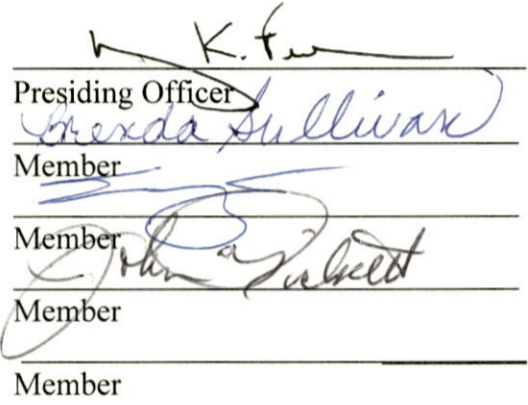 K.
Presiding Officer
Brenda Sullivan
Member
Member
John a Pickett
Member
Member